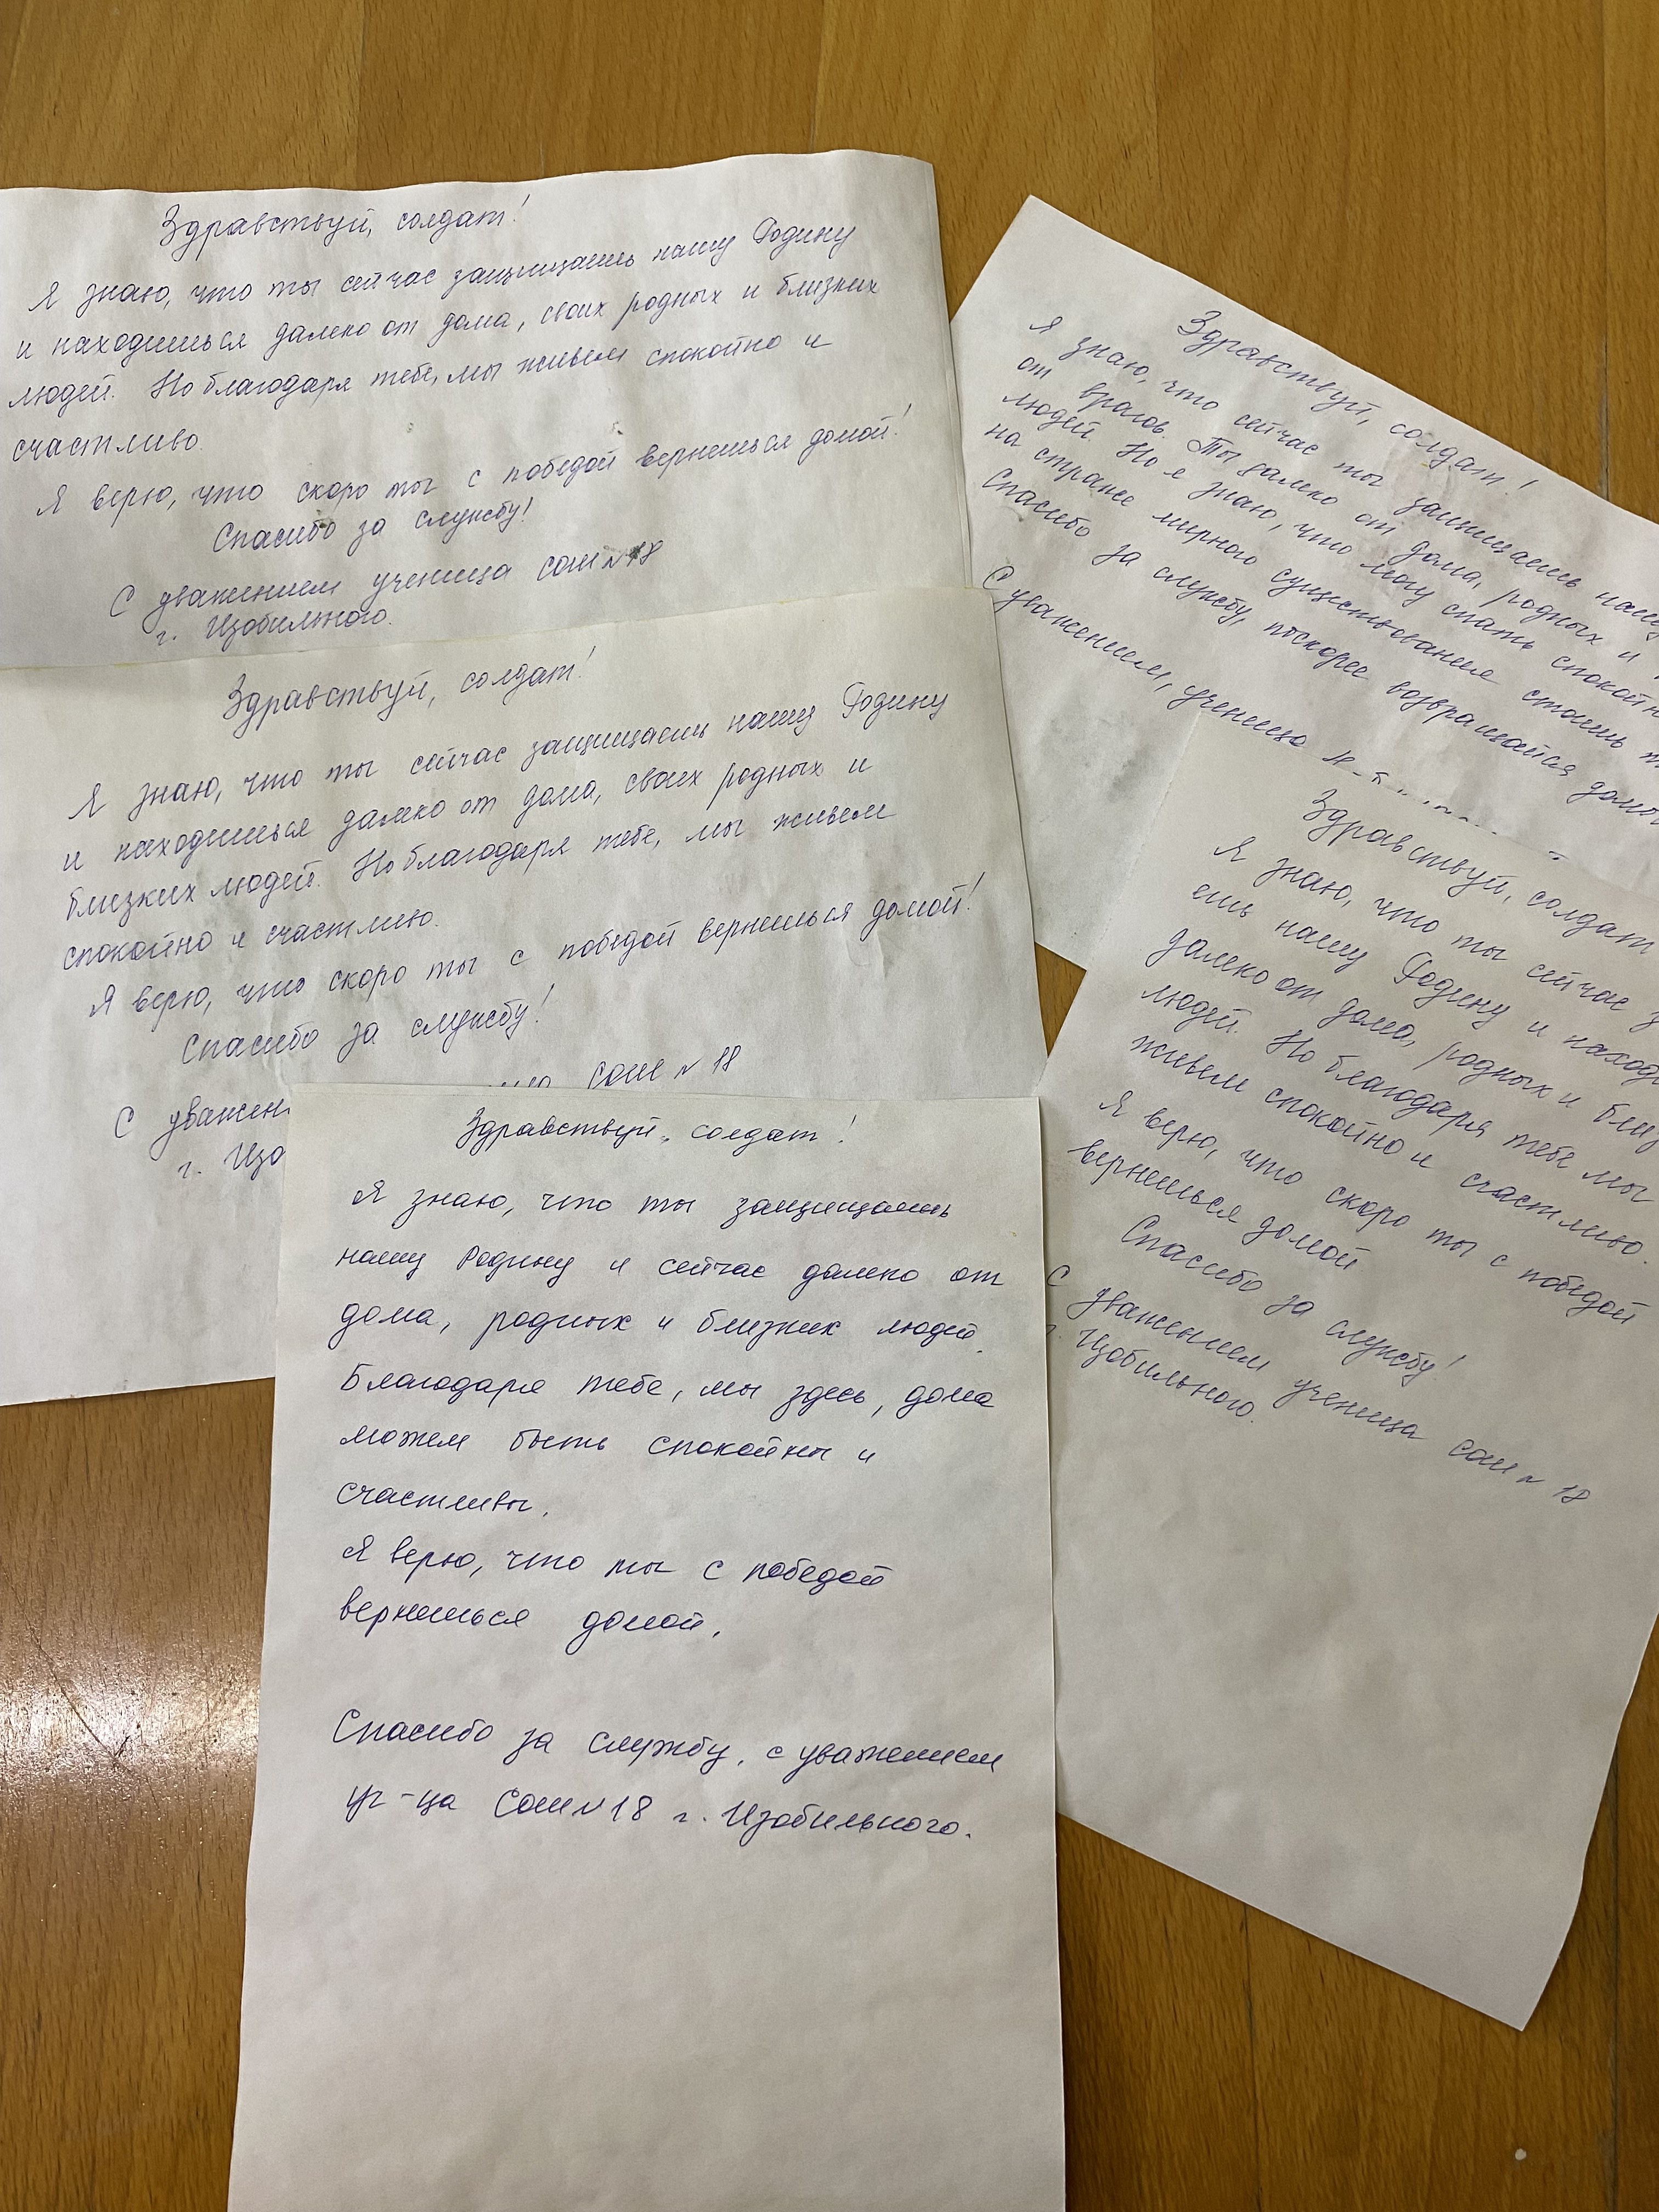 Здравствуй, солдат!
Я знаю, что ты сейчас защищаешь нашу Родину
и находишься далеко от дома, своих родных и близких
людей. Но благодаря тебе, мы живем спокойно и
счастливо.
Я верю, что скоро ты с победой вернешься домой!
Спасибо за службу!
С уважением ученица сош №18
г. Изобильного.
Здравствуй, солдат!
Я знаю, что ты сейчас защищаешь нашу Родину
и находишься далеко от дома, своих родных и
близких людей. Но благодаря тебе, мы живем
спокойно и счастливо.
Я верю, что скоро ты с победой вернешься домой!
Спасибо за службу!
сош №18
С уважен
г. Изо
Здравствуй, солдат!
Я знаю, что ты защищаешь
нашу Родину и сейчас далеко от
дома, родных и близких людей.
Благодаря тебе, мы здесь, дома
можем быть спокойны и
счастливы.
Я верю, что ты с победой
вернешься домой.
Спасибо за службу, с уважением
уч-ца Сош №18 г. Изобильного.
Здравствуй, солдат!
Я знаю, что сейчас ты защищаешь нашу
от врагов. Ты далеко от дома, родных и
людей. Но я знаю, что могу спать спокойно
на страже мирного существования стоишь
Спасибо за службу, поскорее возвращайся домой
С уважением, ученица
Здравствуй, солдат
Я знаю, что ты сейчас з
ешь нашу Родину и наход
далеко от дома, родных и близ
людей. Но благодаря тебе мы
живем спокойно и счастливо.
Я верю, что скоро ты с победой
вернешься домой
Спасибо за службу!
С уважением ученица сош №18
г. Изобильного.